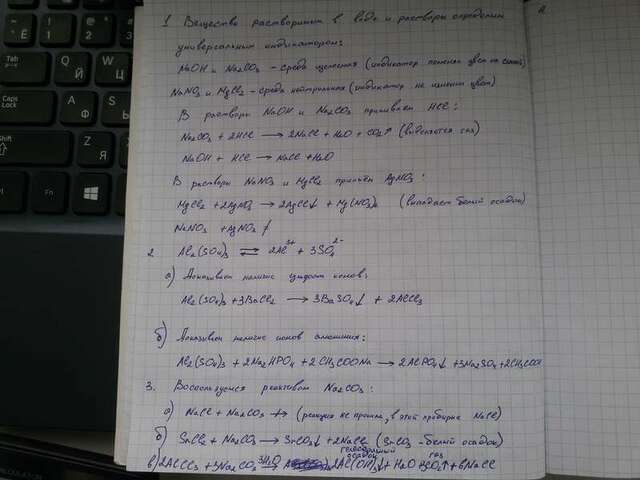 1 Вещества растворили в воде и растворы определили
универсальным индикатором:
NaOH и Na₂CO₃ - среда щелочная (индикатор поменял цвет на синий)
NaNO₃ и MgCl₂ - среда нейтральная (индикатор не изменил цвет)
В растворы NaOH и Na₂CO₃ приливаем HCl:
Na₂CO₃ + 2HCl → 2NaCl + H₂O + CO₂↑ (выделяется газ)
NaOH + HCl → NaCl + H₂O
В растворы NaNO₃ и MgCl₂ прильём AgNO₃:
MgCl₂ + 2AgNO₃ → 2AgCl↓ + Mg(NO₃)₂ (выпадает белый осадок)
NaNO₃ + AgNO₃ ≠
2 Al₂(SO₄)₃ ⇄ 2Al³⁺ + 3SO₄²⁻
а) Доказываем наличие сульфат ионов:
Al₂(SO₄)₃ + 3BaCl₂ → 3BaSO₄↓ + 2AlCl₃
б) Доказываем наличие ионов алюминия:
Al₂(SO₄)₃ + 2Na₂HPO₄ + 2CH₃COONa → 2AlPO₄↓ + 3Na₂SO₄ + 2CH₃COOH
3. Воспользуемся реактивом Na₂CO₃:
а) NaCl + Na₂CO₃ ↛ (реакция не прошла, в этой пробирке NaCl)
б) SrCl₂ + Na₂CO₃ → SrCO₃↓ + 2NaCl (SrCO₃ - белый осадок)
гелеобразный осадок газ
в) 2AlCl₃ + 3Na₂CO₃ 3H₂O → 2Al(OH)₃↓ + H₂O 3CO₂↑ + 6NaCl